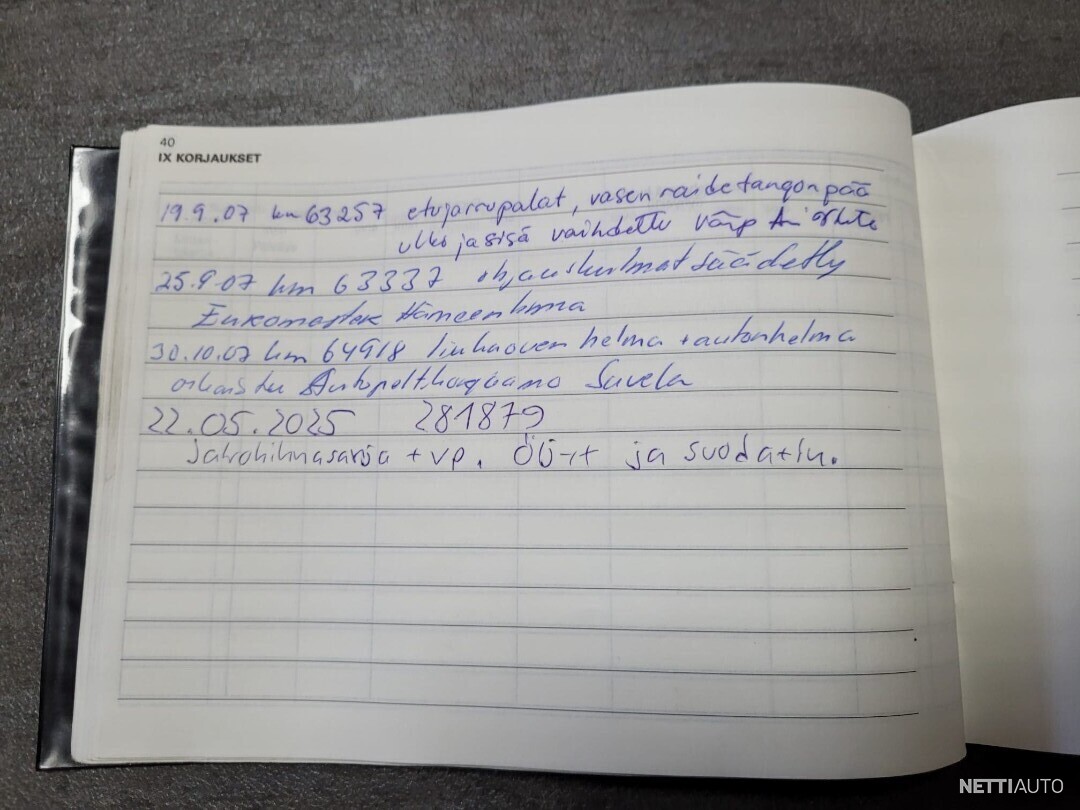 40
IX KORJAUKSET
19.9.07 km 63257 etujarrupalat, vasen raidetangonpää
ulko ja sisä vaihdettu
25.9.07 km 63337 ohjauskulmat säädetty
Euromaster Hämeenlinna
30.10.07 km 64918 liukuoven helma + autonhelma
oikaistu Autopeltikorjaamo Savela
22.05.2025 281879
Jakohihnasarja + vp. Öljyt ja suodatin.
NETTIAUTO